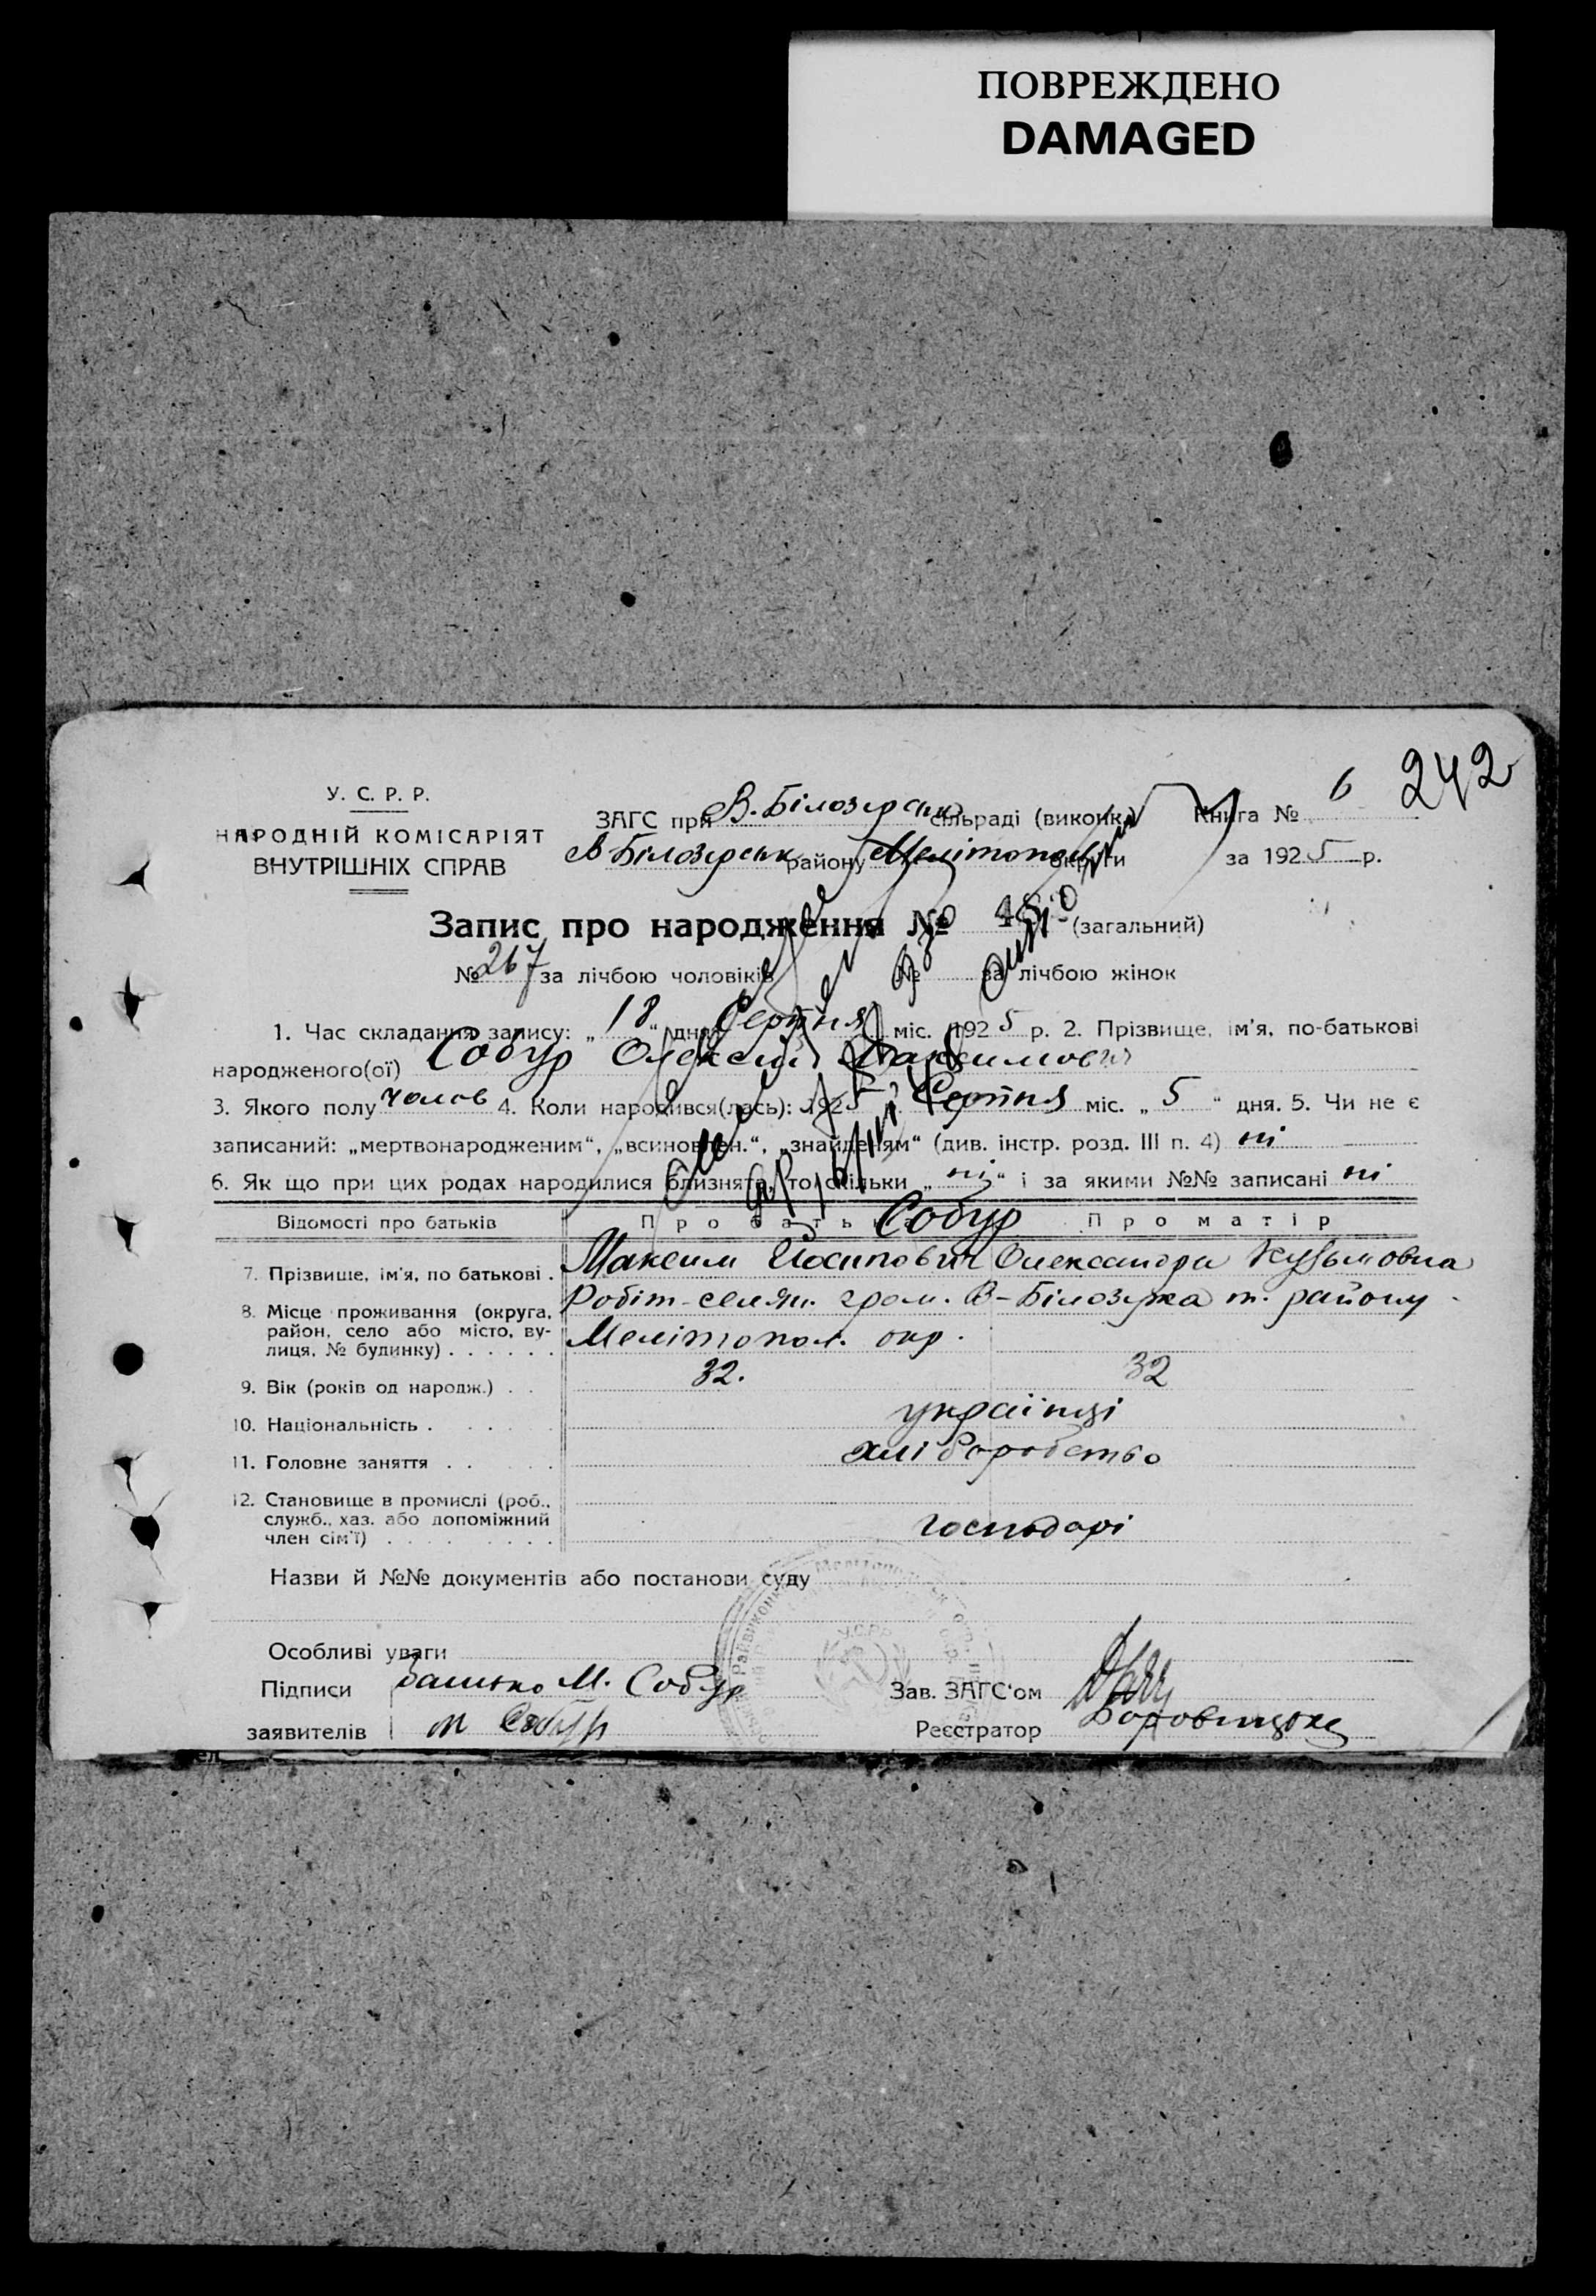 ПОВРЕЖДЕНО
DAMAGED
242
У. С. Р. Р.
НАРОДНІЙ КОМІСАРІЯТ
ВНУТРІШНІХ СПРАВ
ЗАГС при В. Білозерськ сільраді (виконк.) Книга № 6
В Білозерськ району Мелітопольськ округи за 1925 р.
Запис про народження № (загальний)
№ 267 за лічбою чоловіків № за лічбою жінок
1. Час складання запису: „18“ дня Серпня міс. 1925 р. 2. Прізвище, ім'я, по-батькові
народженого(ої) Собур Олексій Максимович
3. Якого полу чолов 4. Коли народився(лась): 1925 Серпня міс. „5“ дня. 5. Чи не є
записаний: „мертвонародженим“, „всиновлен.“, „знайденям“ (див. інстр. розд. III п. 4) ні
6. Як що при цих родах народилися близнята, то скільки „ні“ і за якими №№ записані ні
Відомості про батьків Про батька Собур Про матір
7. Прізвище, ім'я, по батькові . Максим Йосипович Олександра Кузьмовна
8. Місце проживання (округа, район, село або місто, ву-лиця, № будинку) . . . . . . Робіт-селян. гром. В-Білозерка т. району
Мелітопол. окр.
9. Вік (років од народж.) . . 32. 32
10. Національність . . . . . українці
11. Головне заняття . . . . . хліборобство
12. Становище в промислі (роб., служб., хаз. або допоміжний член сім'ї) . . . . . . . . господарі
Назви й №№ документів або постанови суду
Особливі уваги
Підписи батько М. Собур Зав. ЗАГС'ом
заявителів М Собур Реєстратор